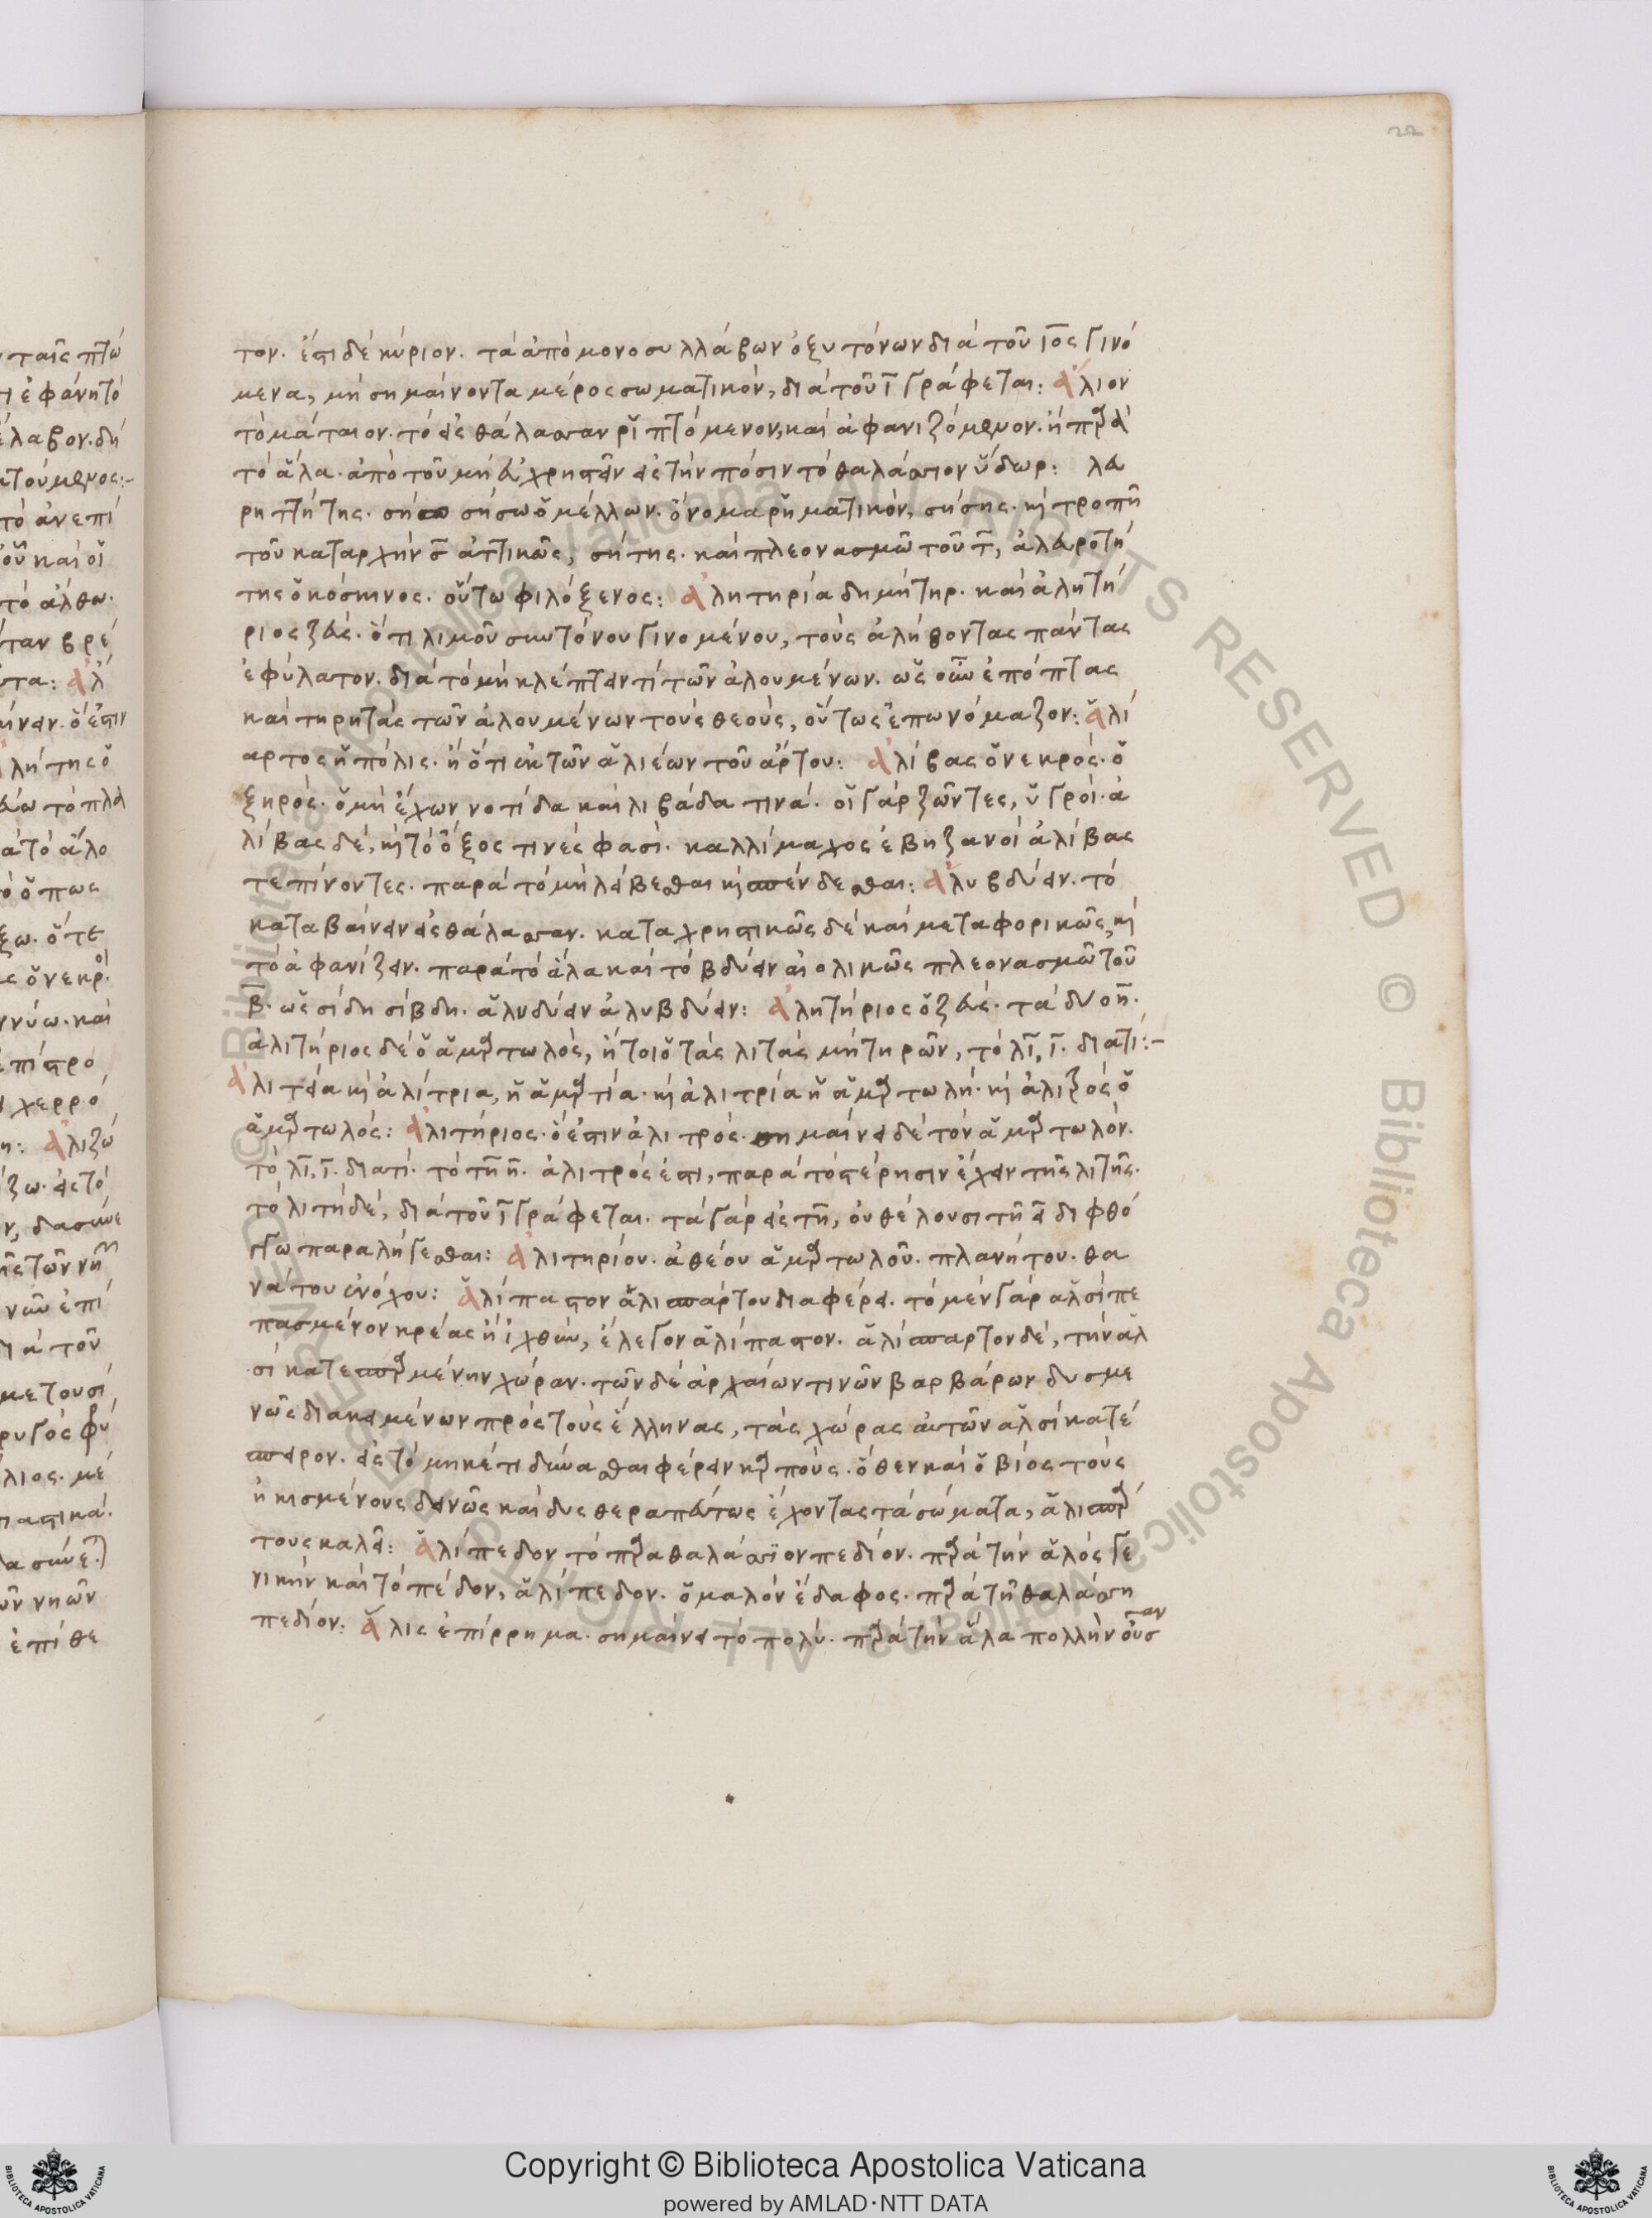 22
τον. ἔστι δὲ κύριον. τὰ ἀπὸ μονοσυλλάβων ὀξυτόνων διὰ τοῦ ιος γινό
μενα, μὴ σημαίνοντα μέρος σωματικόν, διὰ τοῦ ῑ γράφεται: ἅλιον
τὸ μάταιον. τὸ εἰς θάλασσαν ῥιπτόμενον, καὶ ἀφανιζόμενον. ἢ παρὰ
τὸ ἅλα. ἀπὸ τοῦ μὴ εὐχρηστεῖν εἰς τὴν πόσιν τὸ θαλάσσιον ὕδωρ: λευ
ρηττήτης. σήσω ὁ μέλλων. ὄνομα ῥηματικόν, σήσης. κ τροπῆ
τοῦ καταρχὴν σ̄ ἀττικῶς, σήτης. καὶ πλεονασμῶ τοῦ τ̄, ἀλευροττή
της ὁ κόσκινος. οὕτω φιλόξενος: ἀλητηρία δημήτηρ. καὶ ἀλητή
ριος ζεύς. ὅτι λιμοῦ συντόνου γινομένου, τοὺς ἀλήθοντας πάντας
ἐφύλατον. διὰ τὸ μὴ κλέπτειν τί τῶν ἀλουμένων. ὡς οὖν ἐπόπτας
καὶ τηρητὰς τῶν ἀλουμένων τοὺς θεούς, οὕτως ἐπωνόμαζον: ἁλί
αρτος ἡ πόλις. ἢ ὅτι ἐκ τῶν ἁλιέων τοῦ ἄρτου: ἀλίβας ὁ νεκρός. ὁ
ξηρός. ὁ μὴ ἔχων νοτίδα καὶ λιβάδα τινά. οἱ γὰρ ζῶντες, ὑγροί. ἀ
λίβας δὲ, κ τὸ ὄξος τινές φασι. καλλίμαχος ἔβηξαν οἱ ἀλίβας
τε πίνοντες. παρὰ τὸ μὴ λείβεσθαι κ σπένδεσθαι: ἀλυβδύειν. τὸ
καταβαίνειν εἰς θάλασσαν. καταχρηστικῶς δὲ καὶ μεταφορικῶς, κ
τὸ ἀφανίζειν. παρὰ τὸ ἅλα καὶ τὸ βδύειν αἰολικῶς πλεονασμῶ τοῦ
β̄. ὡς σίδη σίβδη. ἁλυδύειν ἀλυβδύειν: ἀλητήριος ὁ ζεύς. τὰ δύο η̄.
ἀλιτήριος δὲ ὁ ἁμαρτωλός, ἤτοι ὁ τὰς λιτὰς μὴ τηρῶν, τὸ λῑ, ῑ. διατί:-
ἀλιτεία κ ἀλίτρια, ἡ ἁμαρτία. κ ἀλιτρία ἡ ἁμαρτωλή. κ ἀλιτρὸς ὁ
ἁμαρτωλός: ἀλιτήριος. ὅ ἐστιν ἀλιτρός. σημαίνει δὲ τὸν ἁμαρτωλόν.
τὸ λῑ, ῑ. διατί. τὸ τη̄ η̄. ἀλιτρός ἐστι, παρὰ τὸ στέρησιν ἔχειν τῆς λιτῆς.
τὸ λιτὴ δὲ, διὰ τοῦ ῑ γράφεται. τὰ γὰρ εἰς τη̄, οὐ θέλουσι τῆ ει διφθό
γγω παραλήγεσθαι: ἀλιτηρίου. ἀθέου ἁμαρτωλοῦ. πλανήτου. θα
νάτου ἐνόχου: ἁλίπαστον ἁλισπάρτου διαφέρει. τὸ μὲν γὰρ ἁλσὶ πε
πασμένον κρέας ἢ ἰχθὺν, ἔλεγον ἁλίπαστον. ἁλίσπαρτον δὲ, τὴν ἁλ
σὶ κατεσπαρμένην χώραν. τῶν δὲ ἀρχαίων τινῶν βαρβάρων δυσμε
νῶς διακειμένων πρὸς τοὺς ἕλληνας, τὰς χώρας αὐτῶν ἁλσὶ κατέ
σπειρον. εἰς τὸ μηκέτι δύνασθαι φέρειν καρπούς. ὅθεν καὶ ὁ βίος τοὺς
ἠκισμένους δεινῶς καὶ δυσθεραπεύτως ἔχοντας τὰ σώματα, ἁλισπάρ
τους καλεῖ: ἁλίπεδον τὸ παραθαλάσσιον πεδίον. παρὰ τὴν ἁλός γε
νικὴν καὶ τὸ πέδον, ἁλίπεδον. ὁμαλὸν ἔδαφος. παρὰ τῆ θαλάσση
πεδίον: ἅλις ἐπίρρημα. σημαίνει τὸ πολύ. παρὰ τὴν ἅλα πολλὴν οὖσαν
Copyright © Biblioteca Apostolica Vaticana
powered by AMLAD·NTT DATA